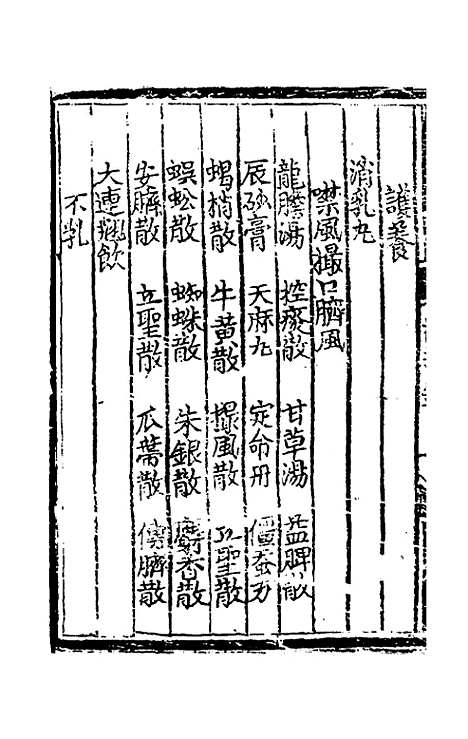 護養
消乳丸
噤風撮口臍風
龍膽湯 控痰散 甘草湯 益脾散
辰砂膏 天麻丸 定命丹 僵蚕方
蝎梢散 牛黃散 撮風散 五聖散
蜈蚣散 蜘蛛散 朱銀散 麝香散
安臍散 立聖散 瓜蔕散 傅臍散
大連翹飲
不乳